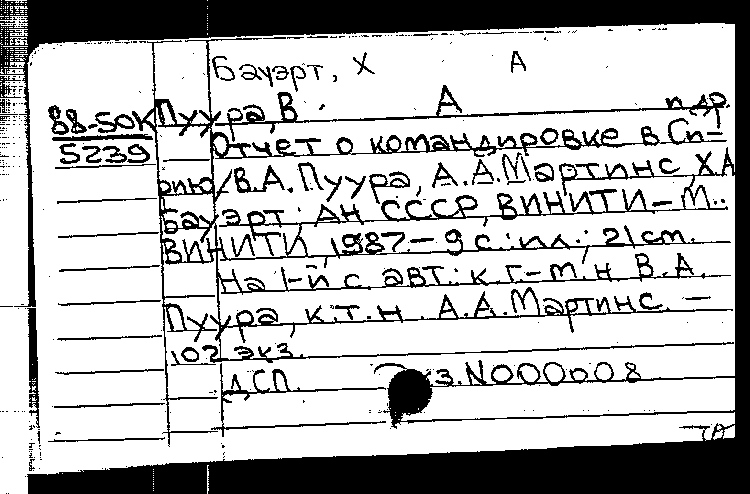 Бауэрт, Х А
88-50К Пуура, В. А и др
5239 Отчет о командировке в Си-
рию/В.А. Пуура, А.А. Мартинс, Х.А
Бауэрт; АН СССР, ВИНИТИ.- М.:
ВИНИТИ, 1987.- 9 с.: ил.; 21 см.
На 1-й с авт.: к.г.-м.н В.А.
Пуура, к.т.н. А.А. Мартинс. -
102 экз.
ДСП. з. N000008